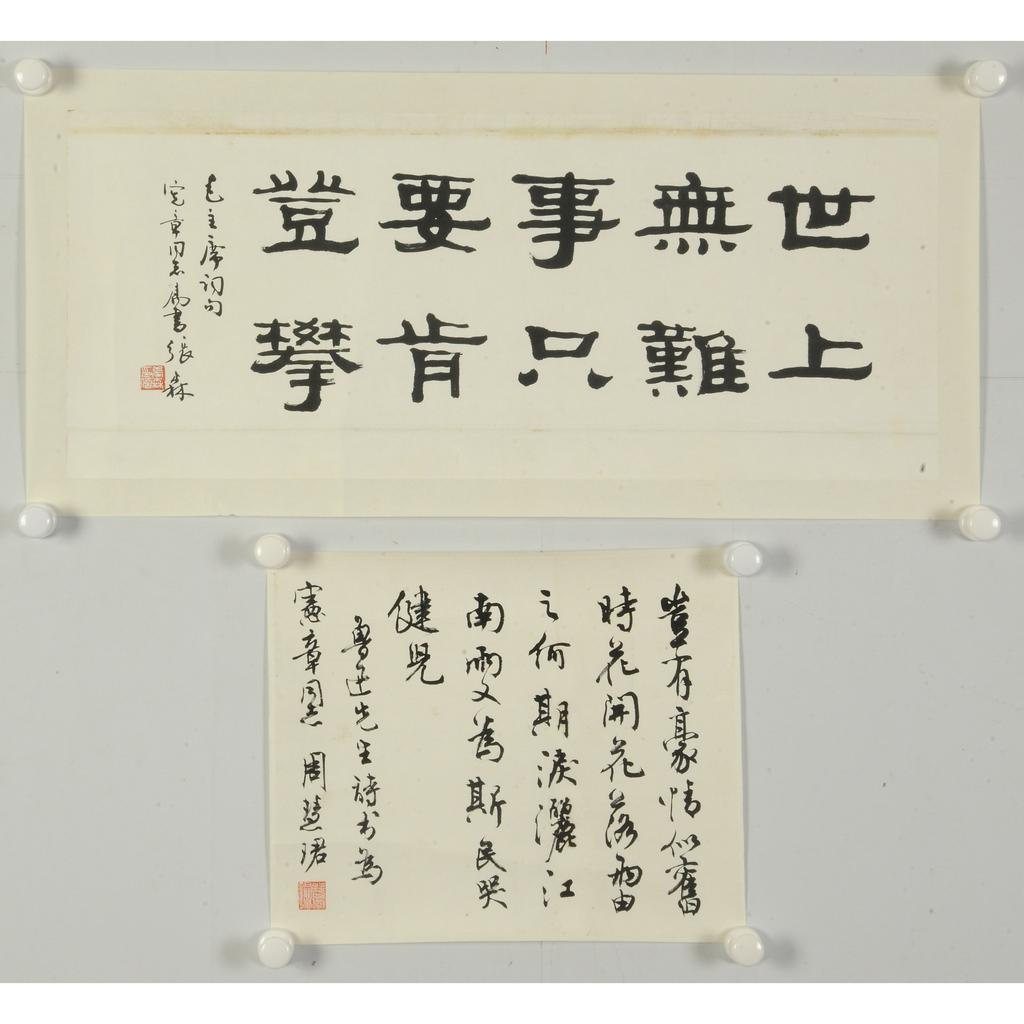 世上
無難
事只
要肯
登攀
毛主席词句
宪章同志属書張森
豈有豪情似舊
時花開花落兩由
之何期淚灑江
南雨又為斯民哭
健兒
魯迅先生詩书為
憲章同志 周慧珺